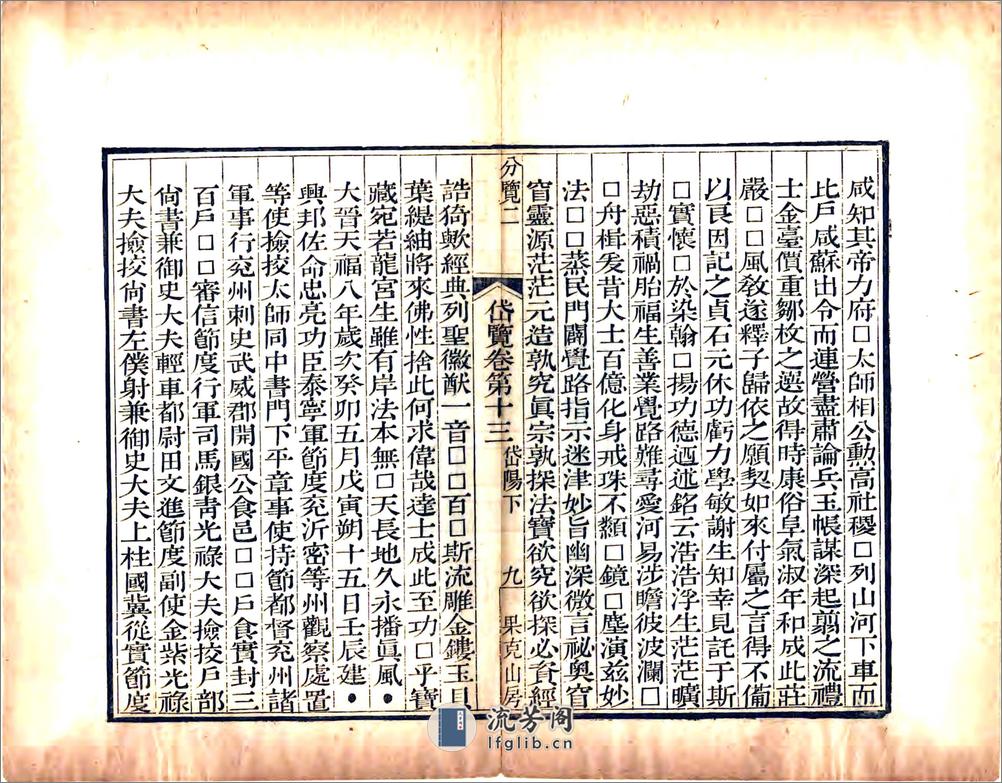 咸知其帝力府□太師相公勳高社稷□列山河下車而
比戶咸蘇出令而連營盡肅論兵玉帳謀深起翦之流禮
士金臺價重鄒枚之選故得時康俗阜氣淑年和成此莊
嚴□□風敎遂釋子歸依之願契如來付屬之言得不葡
以良因記之貞石元休功虧力學敏謝生知幸見託于斯
□實懷□於染翰□揚功德迺述銘云浩浩浮生茫茫曠
劫惡積禍胎福生善業覺路難尋愛河易涉瞻彼波瀾□
□舟楫爰昔大士百億化身戒珠不纇□鏡□塵演茲妙
法□□蒸民門闢覺路指示迷津妙旨幽深微言祕奧窅
窅靈源茫茫元造孰究眞宗孰探法寶欲究欲探必資經
分覽二
岱覽卷第十三 岱陽下 九 果克山房
誥猗歟經典列聖徽猷一音□□□百□斯流雕金鏤玉貝
葉緹紬將來佛性捨此何求偉哉達士成此至功□乎寶
藏宛若龍宮生雖有岸法本無□天長地久永播眞風●
大晉天福八年歲次癸卯五月戊寅朔十五日壬辰建●
興邦佐命忠亮功臣泰寧軍節度兗沂密等州觀察處置
等使撿挍太師同中書門下平章事使持節都督兗州諸
軍事行兗州刺史武威郡開國公食邑□□□戶食實封三
百戶□□審信節度行軍司馬銀靑光祿大夫撿挍戶部
尙書兼御史大夫輕車都尉田文進節度副使金紫光祿
大夫撿挍尙書左僕射兼御史大夫上柱國冀從實節度
流芳阁
lfglib.cn